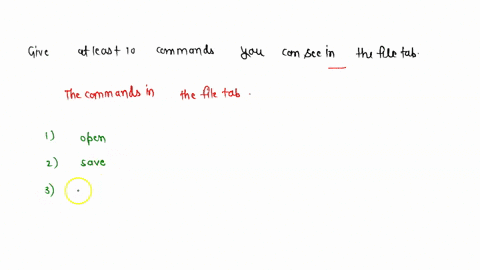 Give atleast 10 commands you can see in the file tab.
The commands in the file tab.
1) open
2) save
3)